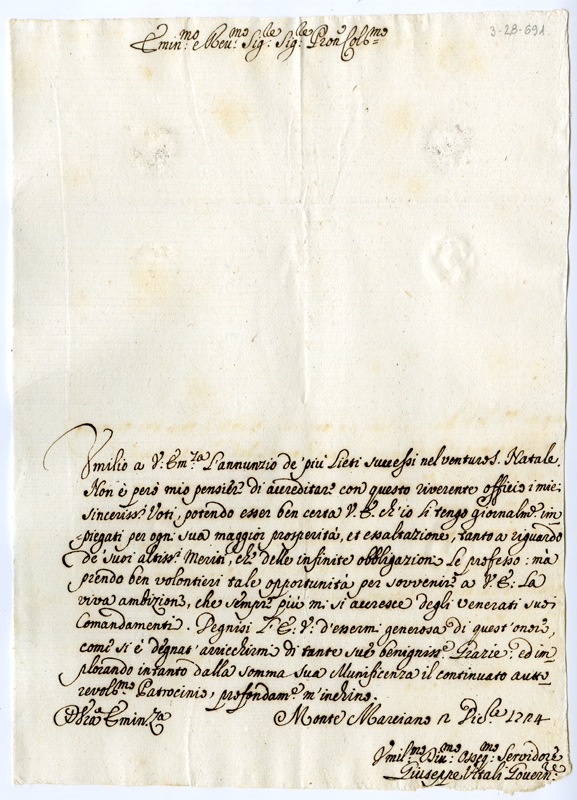 3-28-691
Emin:mo e Rev:mo Sig:re Sig:re Pron Col:mo
Umilio a V: Em:za l'annunzio de' più lieti successi nel venturo S. Natale.
Non è però mio pensier di accreditare con questo riverente officio i miei
sinceriss: Voti, potendo esser ben certa V. E. ch'io li tengo giornalm:e im
piegati per ogni sua maggior prosperità, et essaltazione, tanto a riguardo
de' suoi altiss: Meriti, che delle infinite obbligazioni le professo: mà
prendo ben volontieri tale opportunità per sovvenire a V: E: la
viva ambizione, che sempre più mi si accresce degli venerati suoi
Comandamenti. Degnisi l'E: V: d'essermi generosa di quest'onore,
come si è degnat' arricchirmi di tante sue benigniss:e Grazie: ed im
plorando intanto dalla somma sua Munificenza il continuato auto
revol:mo Patrocinio, profondam:e m'inchino.
D Vra Eminza Monte Marciano 2 Dicbre 1724
Umil:mo Div:mo Osseq:mo Servidore
Giuseppe Vitali Govern:re